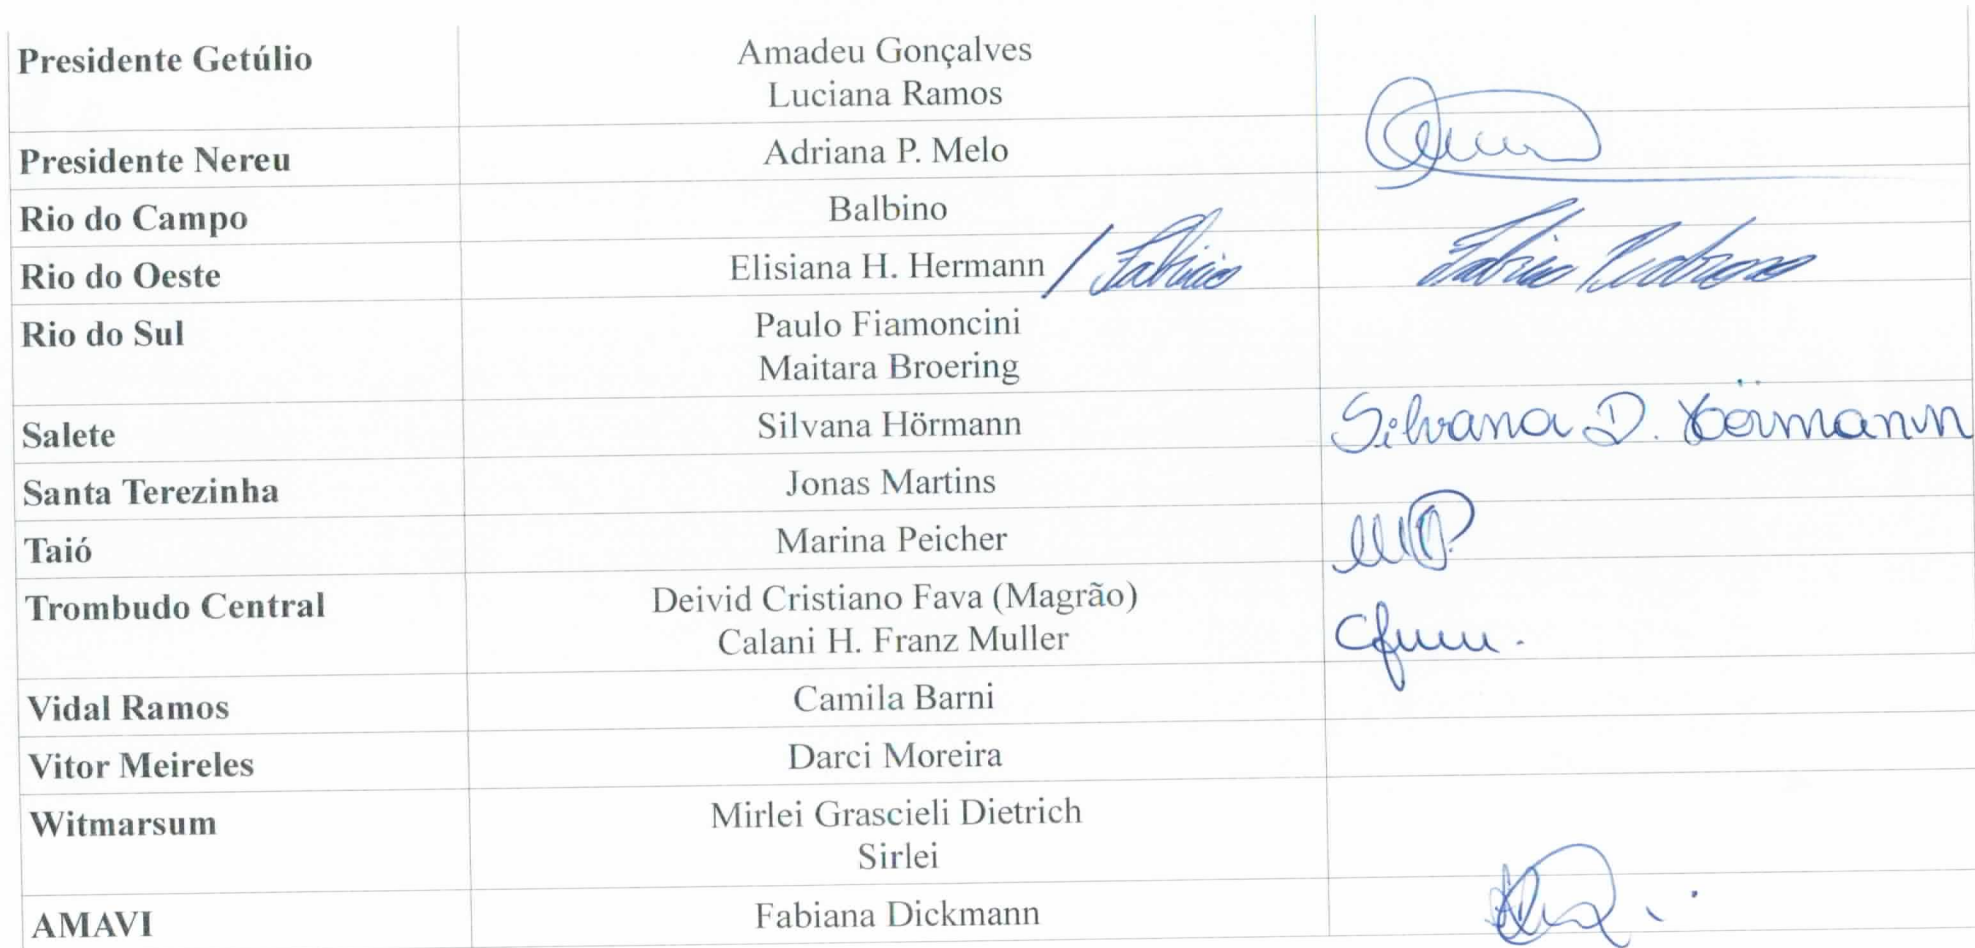 Presidente Getúlio Amadeu Gonçalves
Luciana Ramos
Presidente Nereu Adriana P. Melo
Rio do Campo Balbino
Rio do Oeste Elisiana H. Hermann / Fabricio Fabricio
Rio do Sul Paulo Fiamoncini
Maitara Broering
Salete Silvana Hörmann Silvana D. Hörmann
Santa Terezinha Jonas Martins
Taió Marina Peicher
Trombudo Central Deivid Cristiano Fava (Magrão)
Calani H. Franz Muller
Vidal Ramos Camila Barni
Vitor Meireles Darci Moreira
Witmarsum Mirlei Grascieli Dietrich
Sirlei
AMAVI Fabiana Dickmann